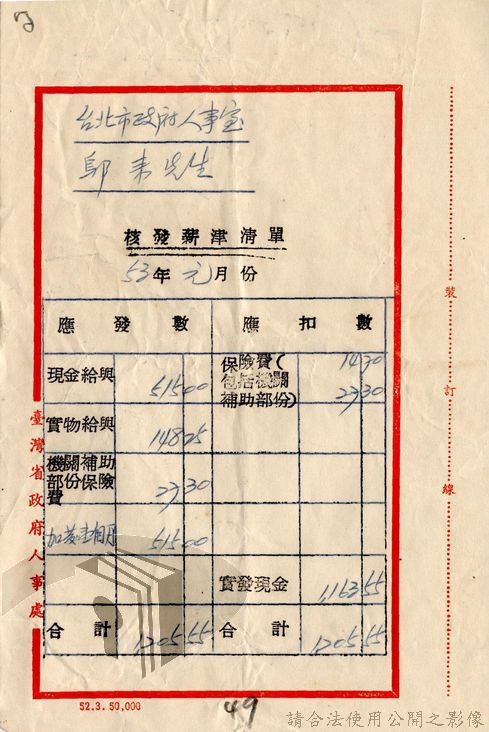 台北市政府人事室
鄔 來先生
核發薪津清單
53年元月份
應發數 應扣數
現金給與 515 00
保險費(包括機關補助部份) 14 30
27 30
實物給與 148 25
機關補助部份保險費 27 30
加發壹個月 515 00
實發現金 1,163 55
合計 1205 55 合計 1205 55
臺灣省政府人事處
裝訂線
52.3.50,000
49
請合法使用公開之影像